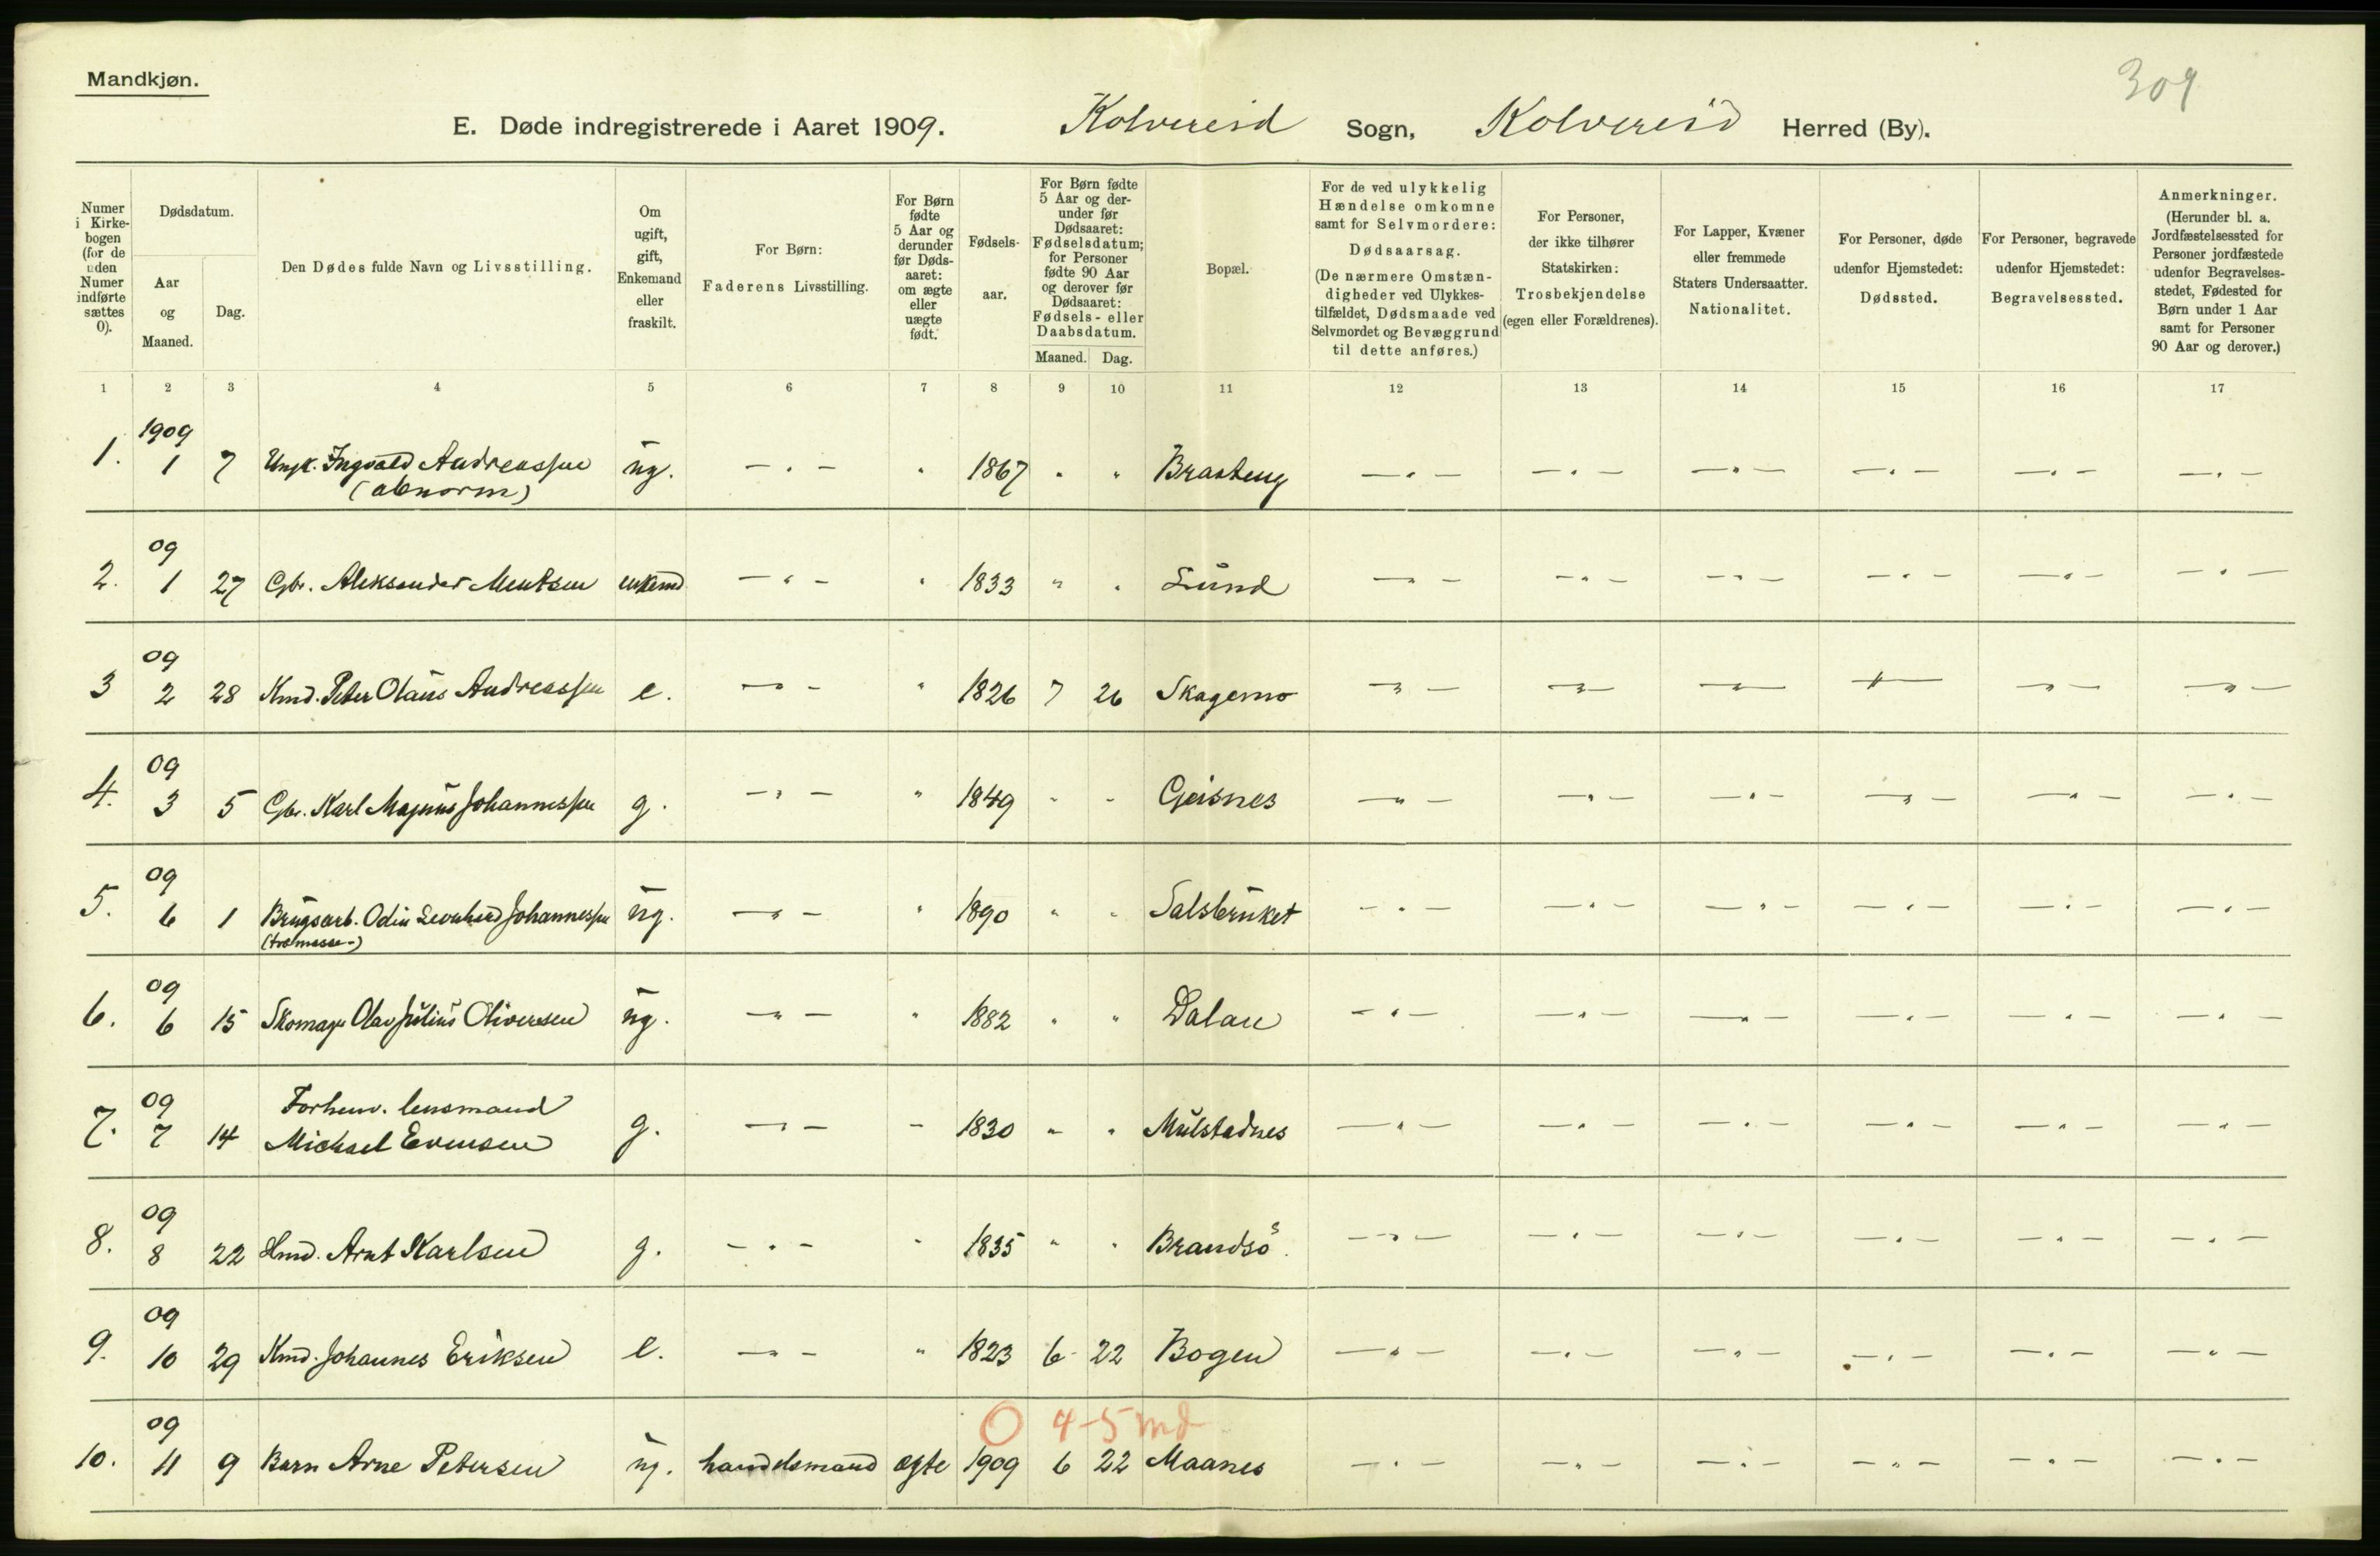 Mandkjøn.
309
E. Døde indregistrerede i Aaret 1909. Kolvereid Sogn, Kolvereid Herred (By).
Numer i Kirkebogen (for de uden Numer indførte sættes 0).
Dødsdatum.
Aar og Maaned.
Dag.
Den Dødes fulde Navn og Livsstilling.
Om ugift, gift, Enkemand eller fraskilt.
For Børn: Faderens Livsstilling.
For Børn fødte 5 Aar og derunder før Dødsaaret: om ægte eller uægte født.
Fødselsaar.
For Børn fødte 5 Aar og derunder før Dødsaaret: Fødselsdatum; for Personer fødte 90 Aar og derover før Dødsaaret: Fødsels- eller Daabsdatum.
Maaned. Dag.
Bopæl.
For de ved ulykkelig Hændelse omkomne samt for Selvmordere: Dødsaarsag. (De nærmere Omstændigheder ved Ulykkestilfældet, Dødsmaade ved Selvmordet og Bevæggrund til dette anføres.)
For Personer, der ikke tilhører Statskirken: Trosbekjendelse (egen eller Forældrenes).
For Lapper, Kvæner eller fremmede Staters Undersaatter. Nationalitet.
For Personer, døde udenfor Hjemstedet: Dødssted.
For Personer, begravede udenfor Hjemstedet: Begravelsessted.
Anmerkninger. (Herunder bl. a. Jordfæstelsessted for Personer jordfæstede udenfor Begravelsesstedet, Fødested for Børn under 1 Aar samt for Personer 90 Aar og derover.)
1 2 3 4 5 6 7 8 9 10 11 12 13 14 15 16 17
1909
1. 1 7 Ungk. Ingvald Andreassen ug. — " — " 1867 " " Brasteng — " — — " — — " — — " — — " — — " —
(abnorm)
09
2. 1 27 Gbr. Aleksander Mentsen enkemd — " — " 1833 " " Lund — " — — " — — " — — " — — " — — " —
09
3 2 28 Kmd. Peter Olaus Andreassen e. — " — " 1826 7 26 Skagemo — " — — " — — " — — " — — " — — " —
09
4. 3 5 Gbr. Karl Magnus Johannessen g. — " — " 1849 " " Geisnes — " — — " — — " — — " — — " — — " —
09
5. 6 1 Brugsarb. Odin Leonhard Johannessen ug. — " — " 1890 " " Salsbruket — " — — " — — " — — " — — " — — " —
09
6. 6 15 Skomager Olav Julius Oliversen ug. — " — " 1882 " " Dalan — " — — " — — " — — " — — " — — " —
09 Forhenv. lensmand
7. 7 14 Michael Evensen g. — " — " 1830 " " Mulstadnes — " — — " — — " — — " — — " — — " —
09
8. 8 22 Hmd. Arnt Karlsen g. — " — " 1835 " " Brandsö — " — — " — — " — — " — — " — — " —
09
9. 10 29 Kmd. Johannes Eriksen e. — " — " 1823 6 22 Bogen — " — — " — — " — — " — — " — — " —
09 0 4-5 md
10. 11 9 Barn Arne Petersen ug. handelsmand egte 1909 6 22 Maanes — " — — " — — " — — " — — " — — " —